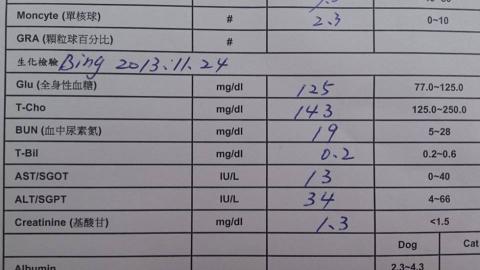 Moncyte (單核球) # 2.3 0~10
GRA (顆粒球百分比) #
生化檢驗 Bing 2013.11.24
Glu (全身性血糖) mg/dl 125 77.0~125.0
T-Cho mg/dl 143 125.0~250.0
BUN (血中尿素氮) mg/dl 19 5~28
T-Bil mg/dl 0.2 0.2~0.6
AST/SGOT IU/L 13 0~40
ALT/SGPT IU/L 34 4~66
Creatinine (基酸甘) mg/dl 1.3 <1.5
Dog Cat
Albumin 2.3~4.3